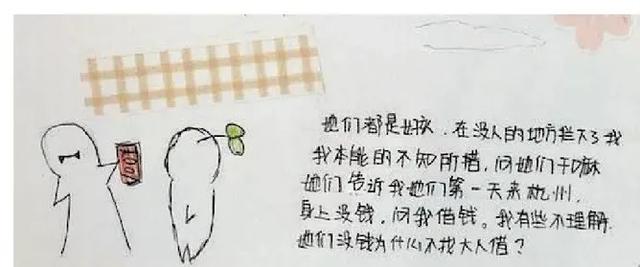 100
她们都是女孩，在没人的地方拦下了我
我本能的不知所措，问她们干嘛
她们告诉我她们第一天来杭州，
身上没钱，问我借钱。我有些不理解，
她们没钱为什么不找大人借？